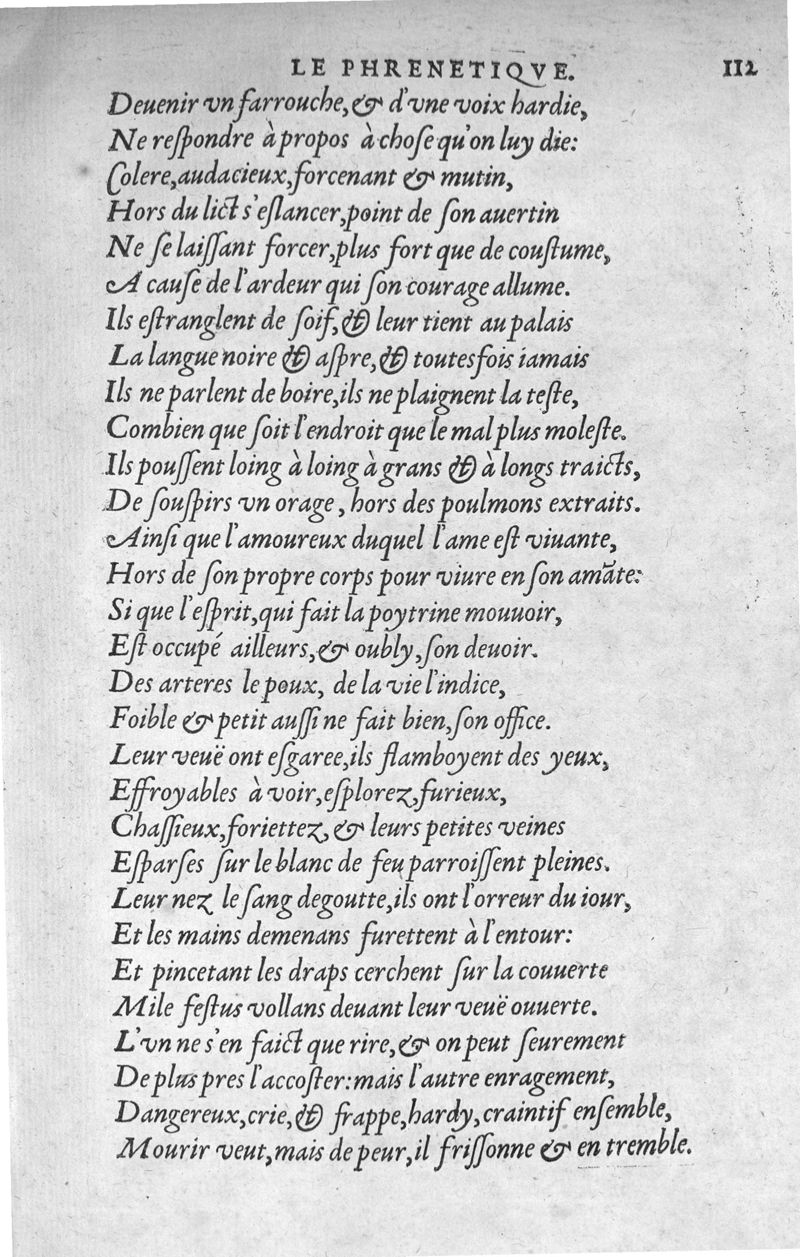 LE PHRENETIQVE. 112
Deuenir vn farrouche, & d'vne voix hardie,
Ne reſpondre à propos à choſe qu'on luy die:
Colere, audacieux, forcenant & mutin,
Hors du lict s'eſlancer, point de ſon auertin
Ne ſe laiſſant forcer, plus fort que de couſtume,
A cauſe de l'ardeur qui ſon courage allume.
Ils eſtranglent de ſoif, & leur tient au palais
La langue noire & aſpre, & toutesfois iamais
Ils ne parlent de boire, ils ne plaignent la teſte,
Combien que ſoit l'endroit que le mal plus moleſte.
Ils pouſſent loing à loing à grans & à longs traicts,
De ſouſpirs vn orage, hors des poulmons extraits.
Ainſi que l'amoureux duquel l'ame eſt viuante,
Hors de ſon propre corps pour viure en ſon amãte:
Si que l'eſprit, qui fait la poytrine mouuoir,
Eſt occupé ailleurs, & oubly, ſon deuoir.
Des arteres le poux, de la vie l'indice,
Foible & petit auſſi ne fait bien, ſon office.
Leur veuë ont eſgaree, ils flamboyent des yeux,
Effroyables à voir, eſplorez, furieux,
Chaſſieux, foriettez, & leurs petites veines
Eſparſes ſur le blanc de feu parroiſſent pleines.
Leur nez le ſang degoutte, ils ont l'orreur du iour,
Et les mains demenans furettent à l'entour:
Et pincetant les draps cerchent ſur la couuerte
Mile feſtus vollans deuant leur veuë ouuerte.
L'vn ne s'en faict que rire, & on peut ſeurement
De plus pres l'accoſter: mais l'autre enragement,
Dangereux, crie, & frappe, hardy, craintif enſemble,
Mourir veut, mais de peur, il friſſonne & en tremble.